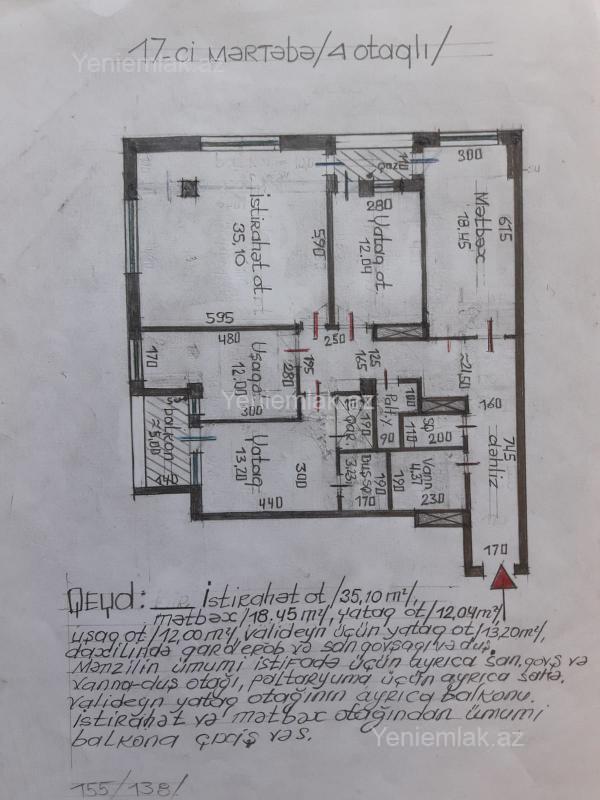 17-ci mərtəbə/4 otaqlı/
Yeniemlak.az
300
110
280
İstirahət ot.
35,10
590
Yataq ot.
12.04
Mətbəx
18.45
615
595
480
250
170
Uşaq o
12.00
280
195
165
125
≈2150
300
Yeniemlak.az
160
balkon
Yataq
13,20
300
440
190
90
100
110
200
715
dəhliz
3,23
170
190
190
Vann
4.37
230
170
Qeyd: İstirahət ot/35,10 m²/,
mətbəx/18.45 m²/, yataq ot/12,04m²/,
uşaq ot/12,00m²/, valideyn üçün yataq ot/13,20m²/,
daxilində qarderob və san.qovşaqı və duş.
Mənzilin ümumi istifadə üçün ayrıca san.qovş və
vanna-duş otağı, paltaryuma üçün ayrıca sahə.
valideyn yataq otağının ayrıca balkonu.
İstirahət və mətbəx otağından ümumi
balkona çıxış var.
Yeniemlak.az
155/138/